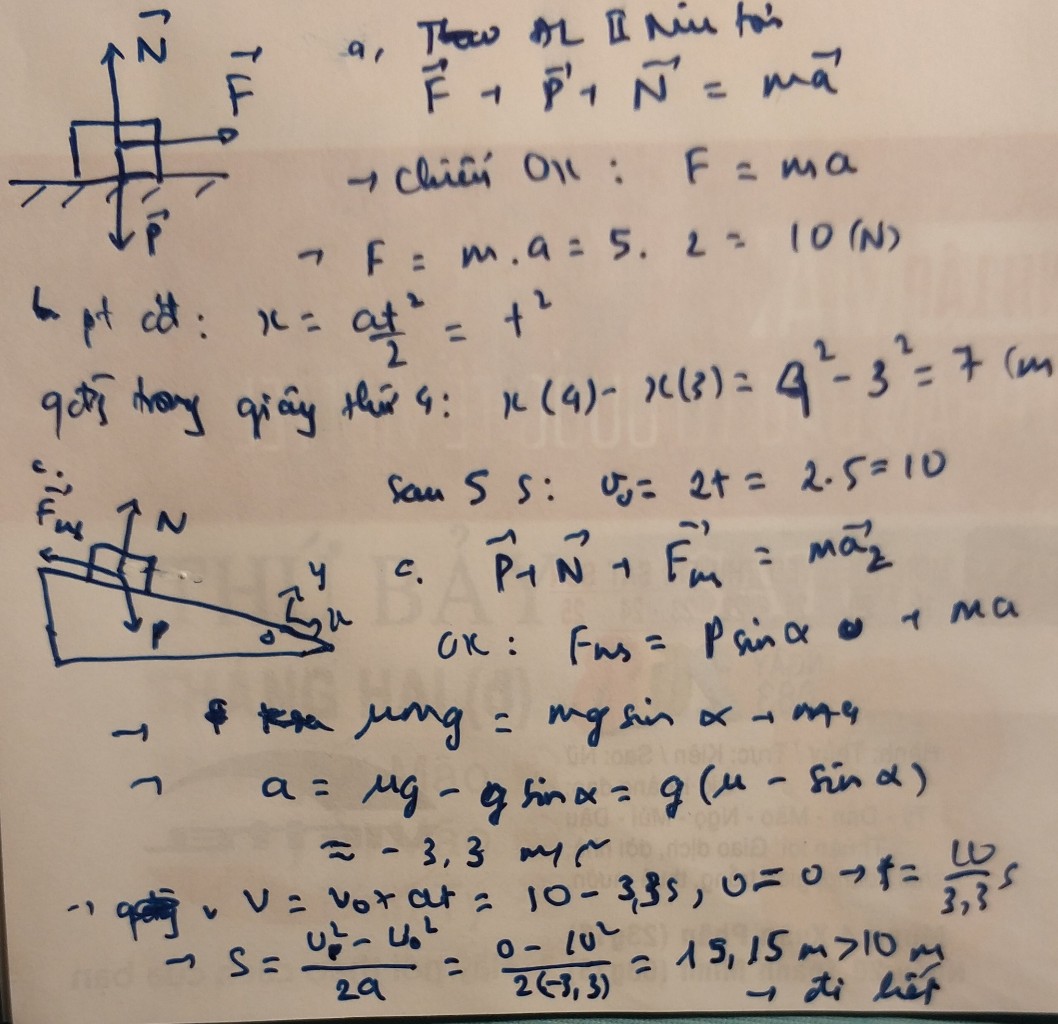 N F P
a, Theo ĐL II Niu tơn
F + P + N = ma
→ chiếu OX : F = ma
→ F = m.a = 5. 2 = 10 (N)
b pt cđ: x = at²/2 = t²
qđ trong giây thứ 4: x(4) - x(3) = 4² - 3² = 7 (m
sau 5 s: v₀ = 2t = 2.5 = 10
c.
Fms N P O y x
c. P + N + Fm = ma₂
OX : Fms = P sin α + ma
→ μmg = mg sin α + ma
→ a = μg - g sin α = g(μ - sin α)
≈ - 3,3 m/s²
→ v = v₀ + at = 10 - 3,3s, v = 0 → t = 10/3,3 s
→ S = (v² - v₀²)/2a = (0 - 10²)/2(-3,3) = 15,15 m > 10 m
→ đi hết